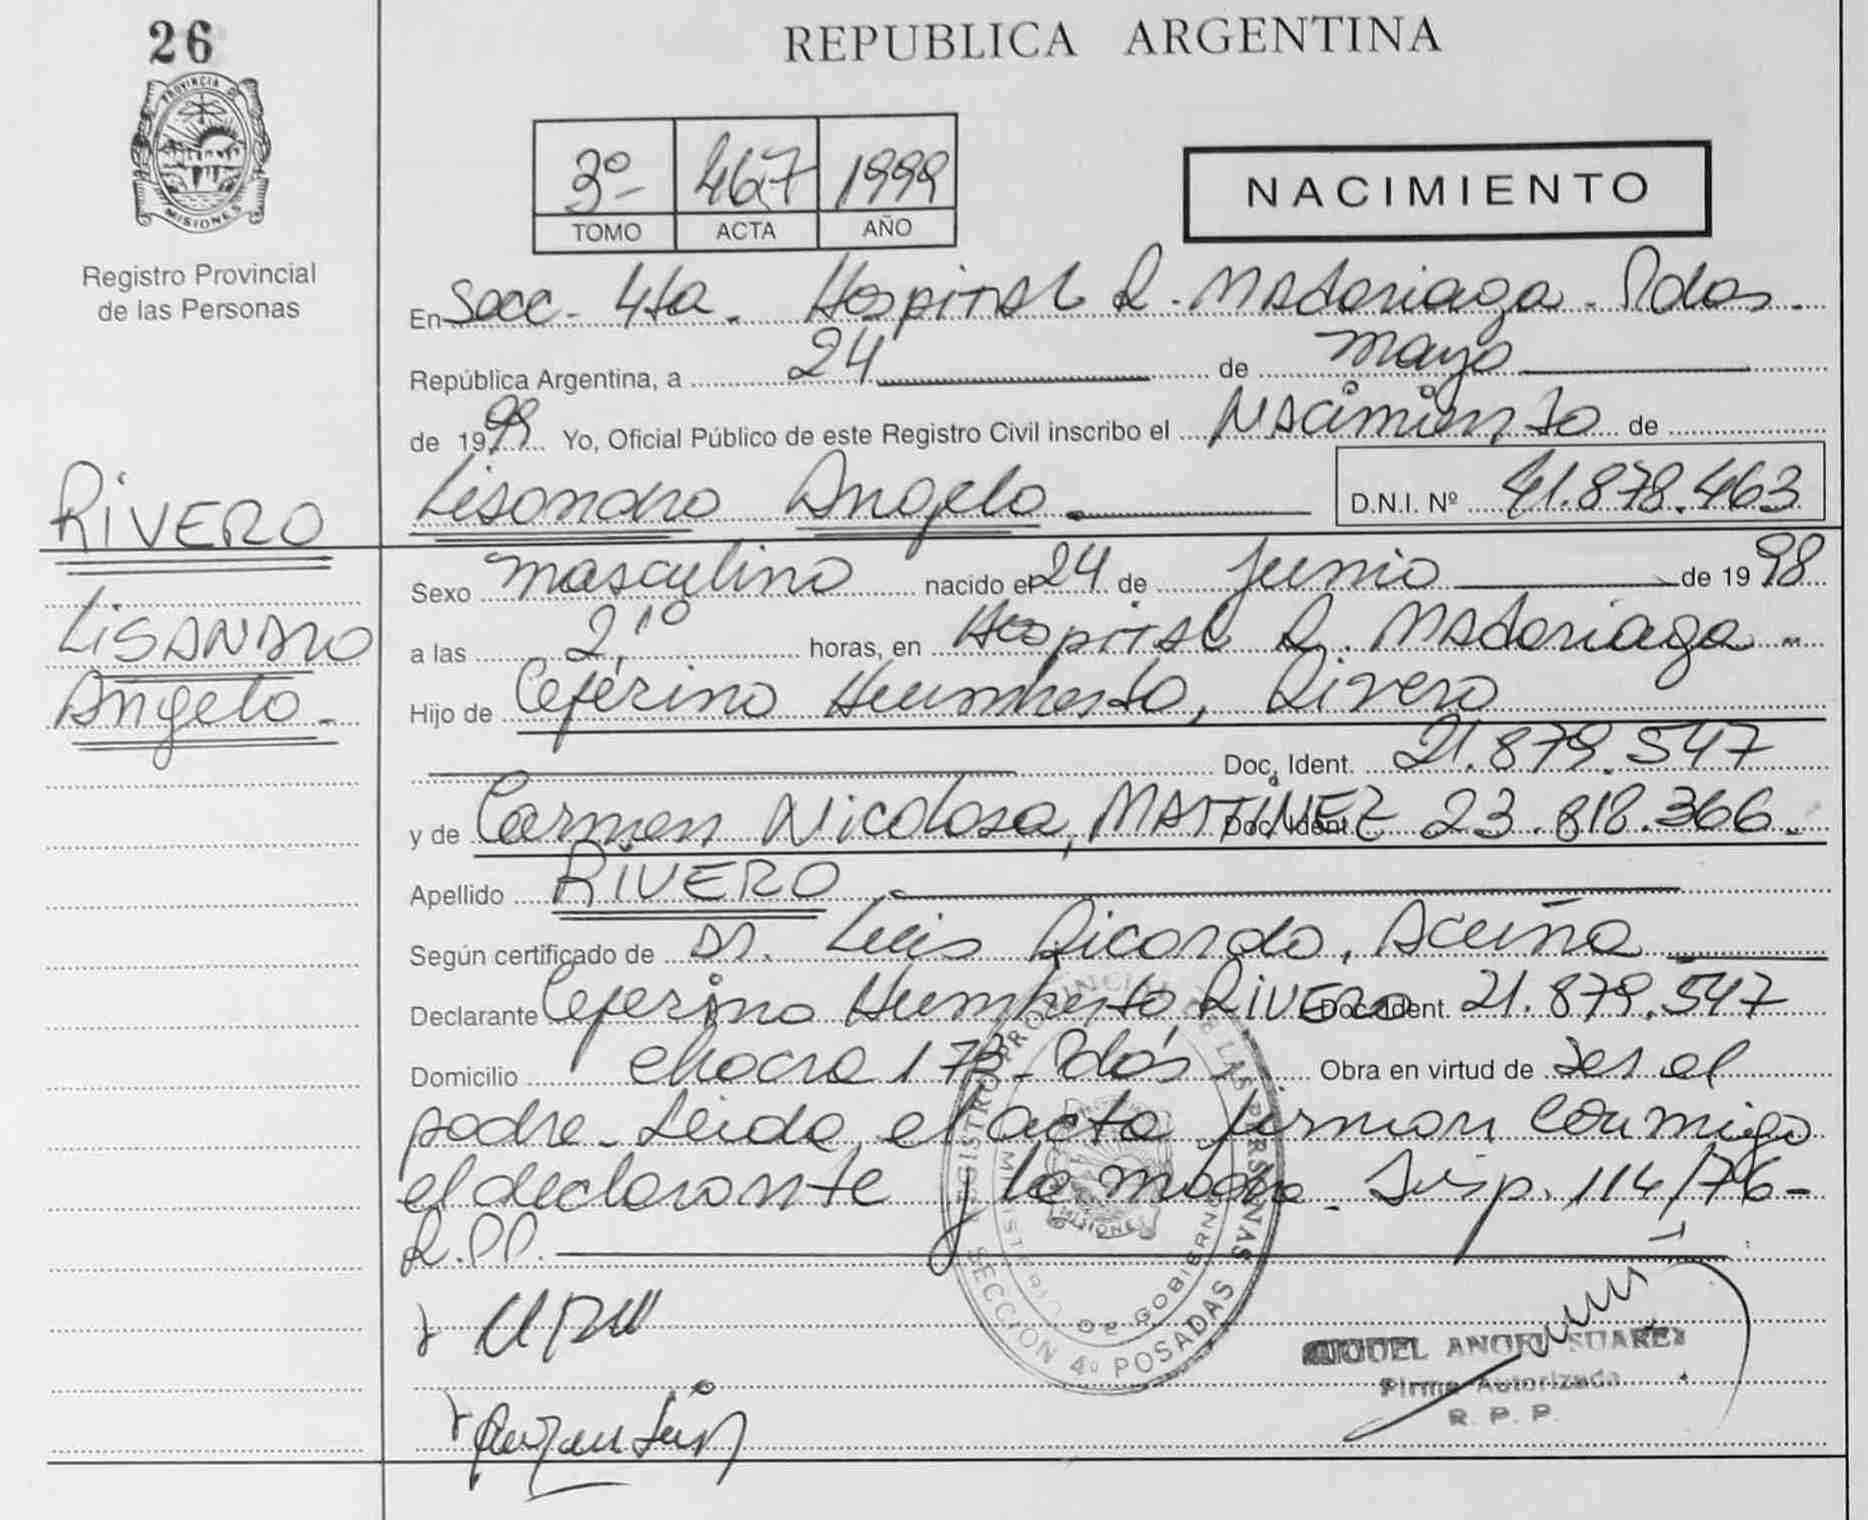 26
PROVINCIA DE
MISIONES
Registro Provincial
de las Personas
RIVERO
LISANDRO
Angelo.-
REPUBLICA ARGENTINA
3º- 467 1999
TOMO ACTA AÑO
NACIMIENTO
En Secc. 4ta. Hospital R. Madariaga. Pdas.
República Argentina, a 24 de mayo
de 1999 Yo, Oficial Público de este Registro Civil inscribo el Nacimiento de
Lisandro Angelo. D.N.I. Nº 41.878.463
Sexo masculino nacido el 24 de Junio de 1998
a las 2,10 horas, en Hospital R. Madariaga -
Hijo de Ceferino Humberto, Rivero
Doc. Ident. 21.879.547
y de Carmen Nicolasa, MARTÍNEZ Doc. Ident. 23.818.366.
Apellido RIVERO
Según certificado de Dr. Luis Ricardo, Acuña
Declarante Ceferino Humberto RIVERO Doc. Ident. 21.879.547
Domicilio chacra 173 - Pdas Obra en virtud de ser el
padre. Leida el acta firman conmigo
el declarante y la madre. Disp. 114/76-
R.P.P.
REGISTRO PROVINCIAL DE LAS PERSONAS
MINISTERIO DE GOBIERNO
MISIONES
SECCION 4º POSADAS
MIGUEL ANGEL SUAREZ
Firma Autorizada
R. P. P.